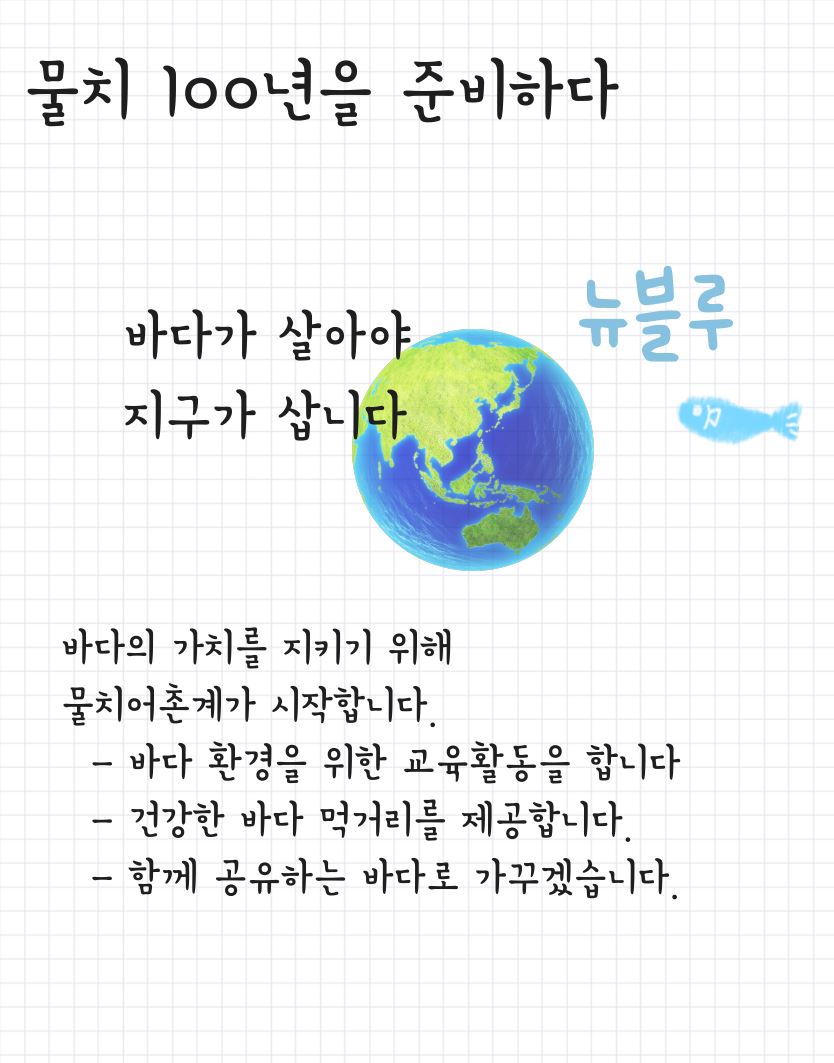 물치 100년을 준비하다
뉴블루
바다가 살아야
지구가 삽니다
바다의 가치를 지키기 위해
물치어촌계가 시작합니다.
- 바다 환경을 위한 교육활동을 합니다
- 건강한 바다 먹거리를 제공합니다.
- 함께 공유하는 바다로 가꾸겠습니다.